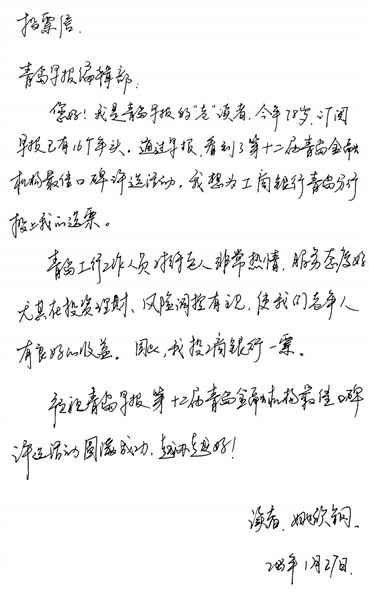 投票信
青岛早报编辑部：
您好！我是青岛早报的“老”读者，今年78岁，订阅
早报已有16个年头。通过早报，看到了第十二届青岛金融
机构最佳口碑评选活动，我想为工商银行青岛分行
投上我的选票。
青岛工行工作人员对待老人非常热情，服务态度好
尤其在投资理财、风险调控有记，使我们老年人
有良好的收益。因此，我投工商银行一票。
预祝青岛早报第十二届青岛金融机构最佳口碑
评选活动圆满成功，越办越好！
读者：姚欣钢
年1月27日